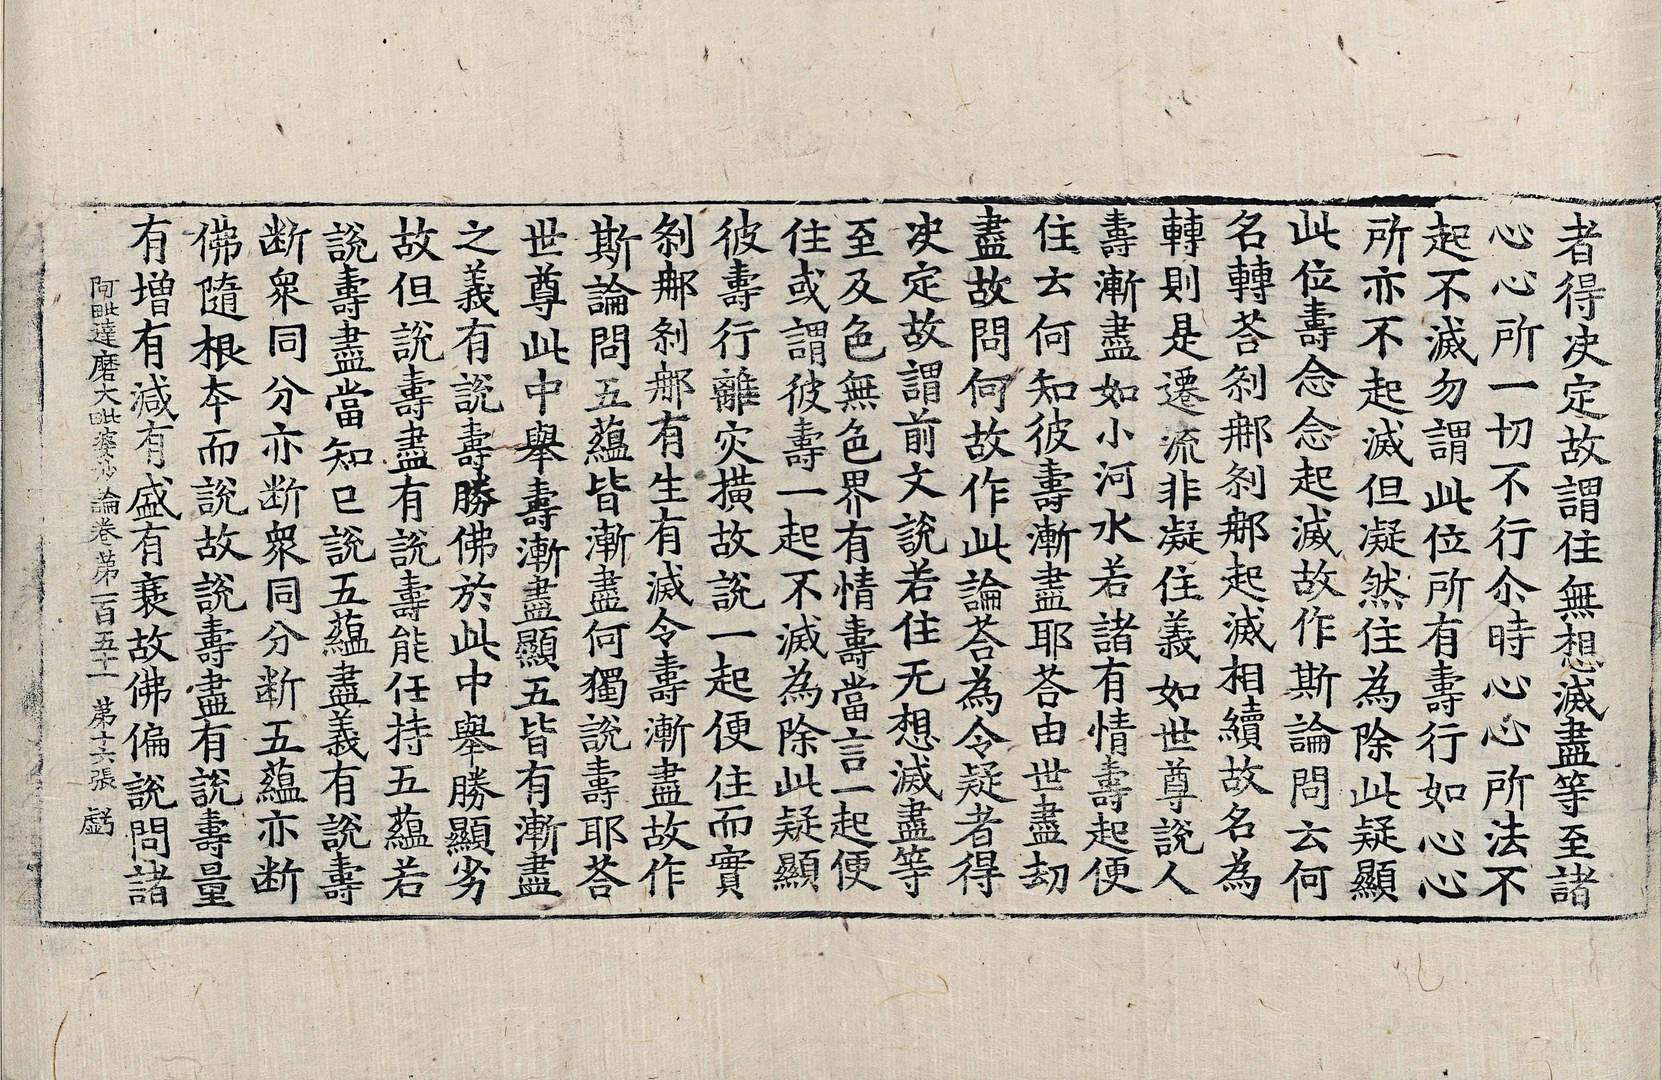 者得决定故謂住無想滅盡等至諸
心心所一切不行尒時心心所法不
起不滅勿謂此位所有壽行如心心
所亦不起滅但凝然住為除此疑顯
此位壽念念起滅故作斯論問云何
名轉荅剎那剎那起滅相續故名為
轉則是遷流非凝住義如世尊說人
壽漸盡如小河水若諸有情壽起便
住云何知彼壽漸盡耶荅由世盡劫
盡故問何故作此論荅為令疑者得
决定故謂前文說若住无想滅盡等
至及色無色界有情壽當言一起便
住或謂彼壽一起不滅為除此疑顯
彼壽行離灾橫故說一起便住而實
剎那剎那有生有滅令壽漸盡故作
斯論問五蘊皆漸盡何獨說壽耶荅
世尊此中舉壽漸盡顯五皆有漸盡
之義有說壽勝佛於此中舉勝顯劣
故但說壽盡有說壽能任持五蘊若
說壽盡當知已說五蘊盡義有說壽
断衆同分亦断衆同分断五蘊亦断
佛隨根本而說故說壽盡有說壽量
有增有減有盛有衰故佛偏說問諸
阿毗達磨大毗婆沙論卷第一百五十一 第十六張 虧